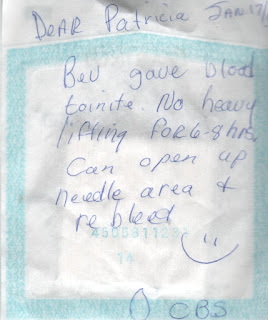 DEAR Patricia JAN.17/
Bev gave blood
toinite. No heavy
lifting for 6-8 hrs.
Can open up
needle area &
re bleed
14
CBS